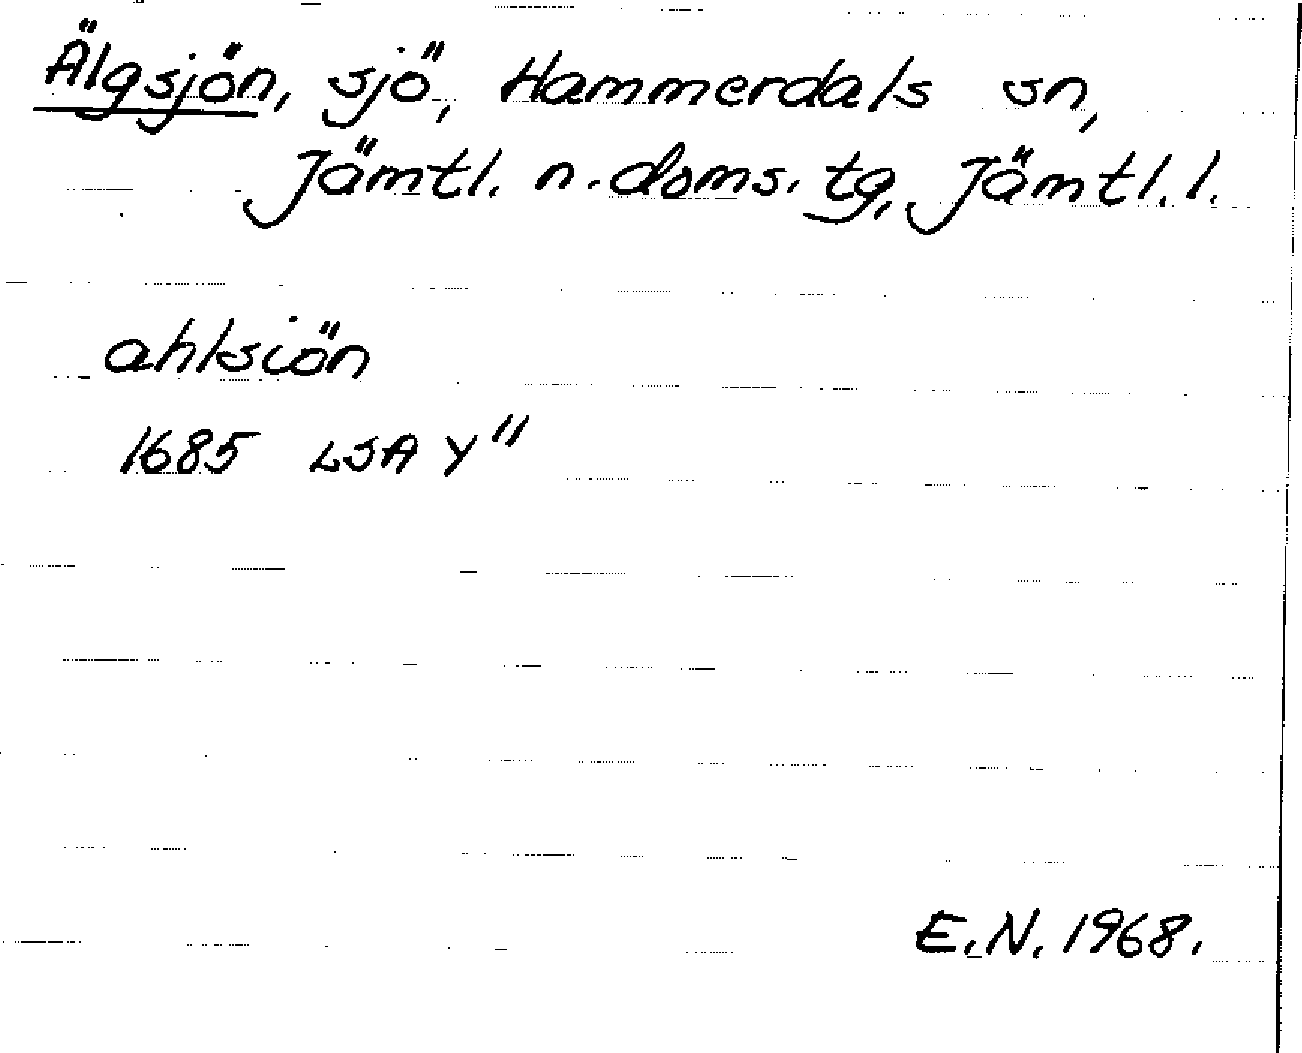 Älgsjön, sjö, Hammerdals sn,
Jämtl. n. doms. tg, Jämtl. l.
ahlsiön
1685 LSA Y"
E.N. 1968.